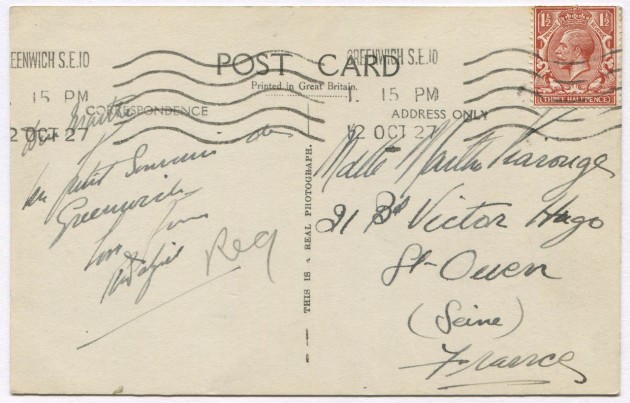 GREENWICH S.E.10
15 PM
12 OCT 27
POST CARD
Printed in Great Britain.
GREENWICH S.E.10
1. 15 PM
12 OCT 27
1½ 1½
THREE HALFPENCE
CORRESPONDENCE
ADDRESS ONLY
Marthe
un petit Souvenir de
Greenwich
Ton
Reg
THIS IS A REAL PHOTOGRAPH.
Melle Marthe
21 Bd Victor Hugo
St-Ouen
(Seine)
France